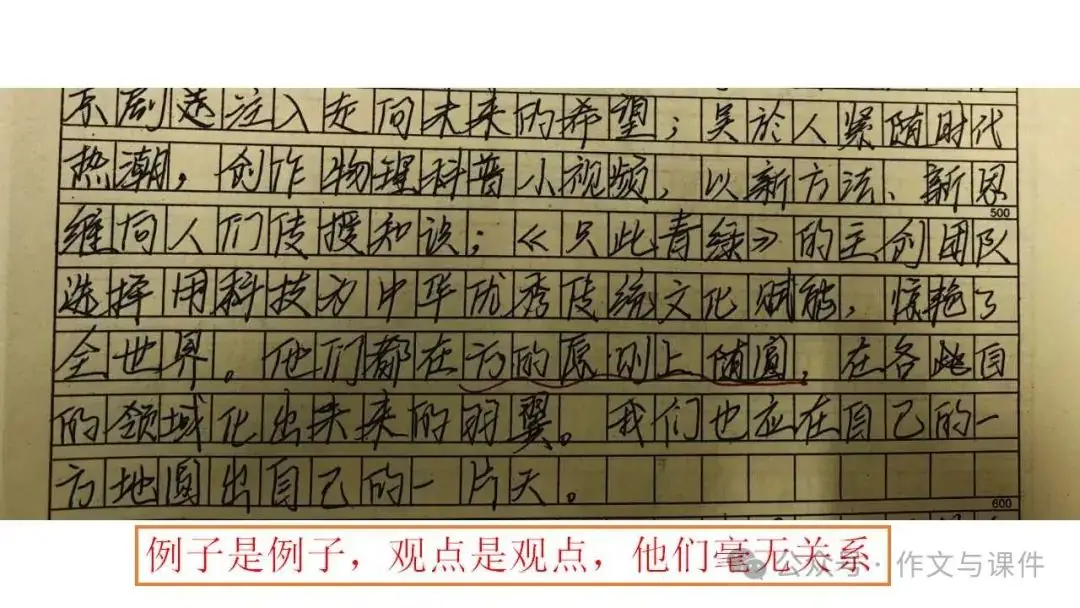 京剧送注入走向未来的希望；吴於人紧随时代
热潮，创作物理科普小视频，以新方法、新思
500
维向人们传授知识；《只此青绿》的主创团队
选择用科技为中华优秀传统文化赋能，惊艳了
全世界。他们都在方的原则上随圆，在各自
的领域化出未来的羽翼。我们也应在自己的一
方地圆出自己的一片天。
600
例子是例子，观点是观点，他们毫无关系
公众号·作文与课件